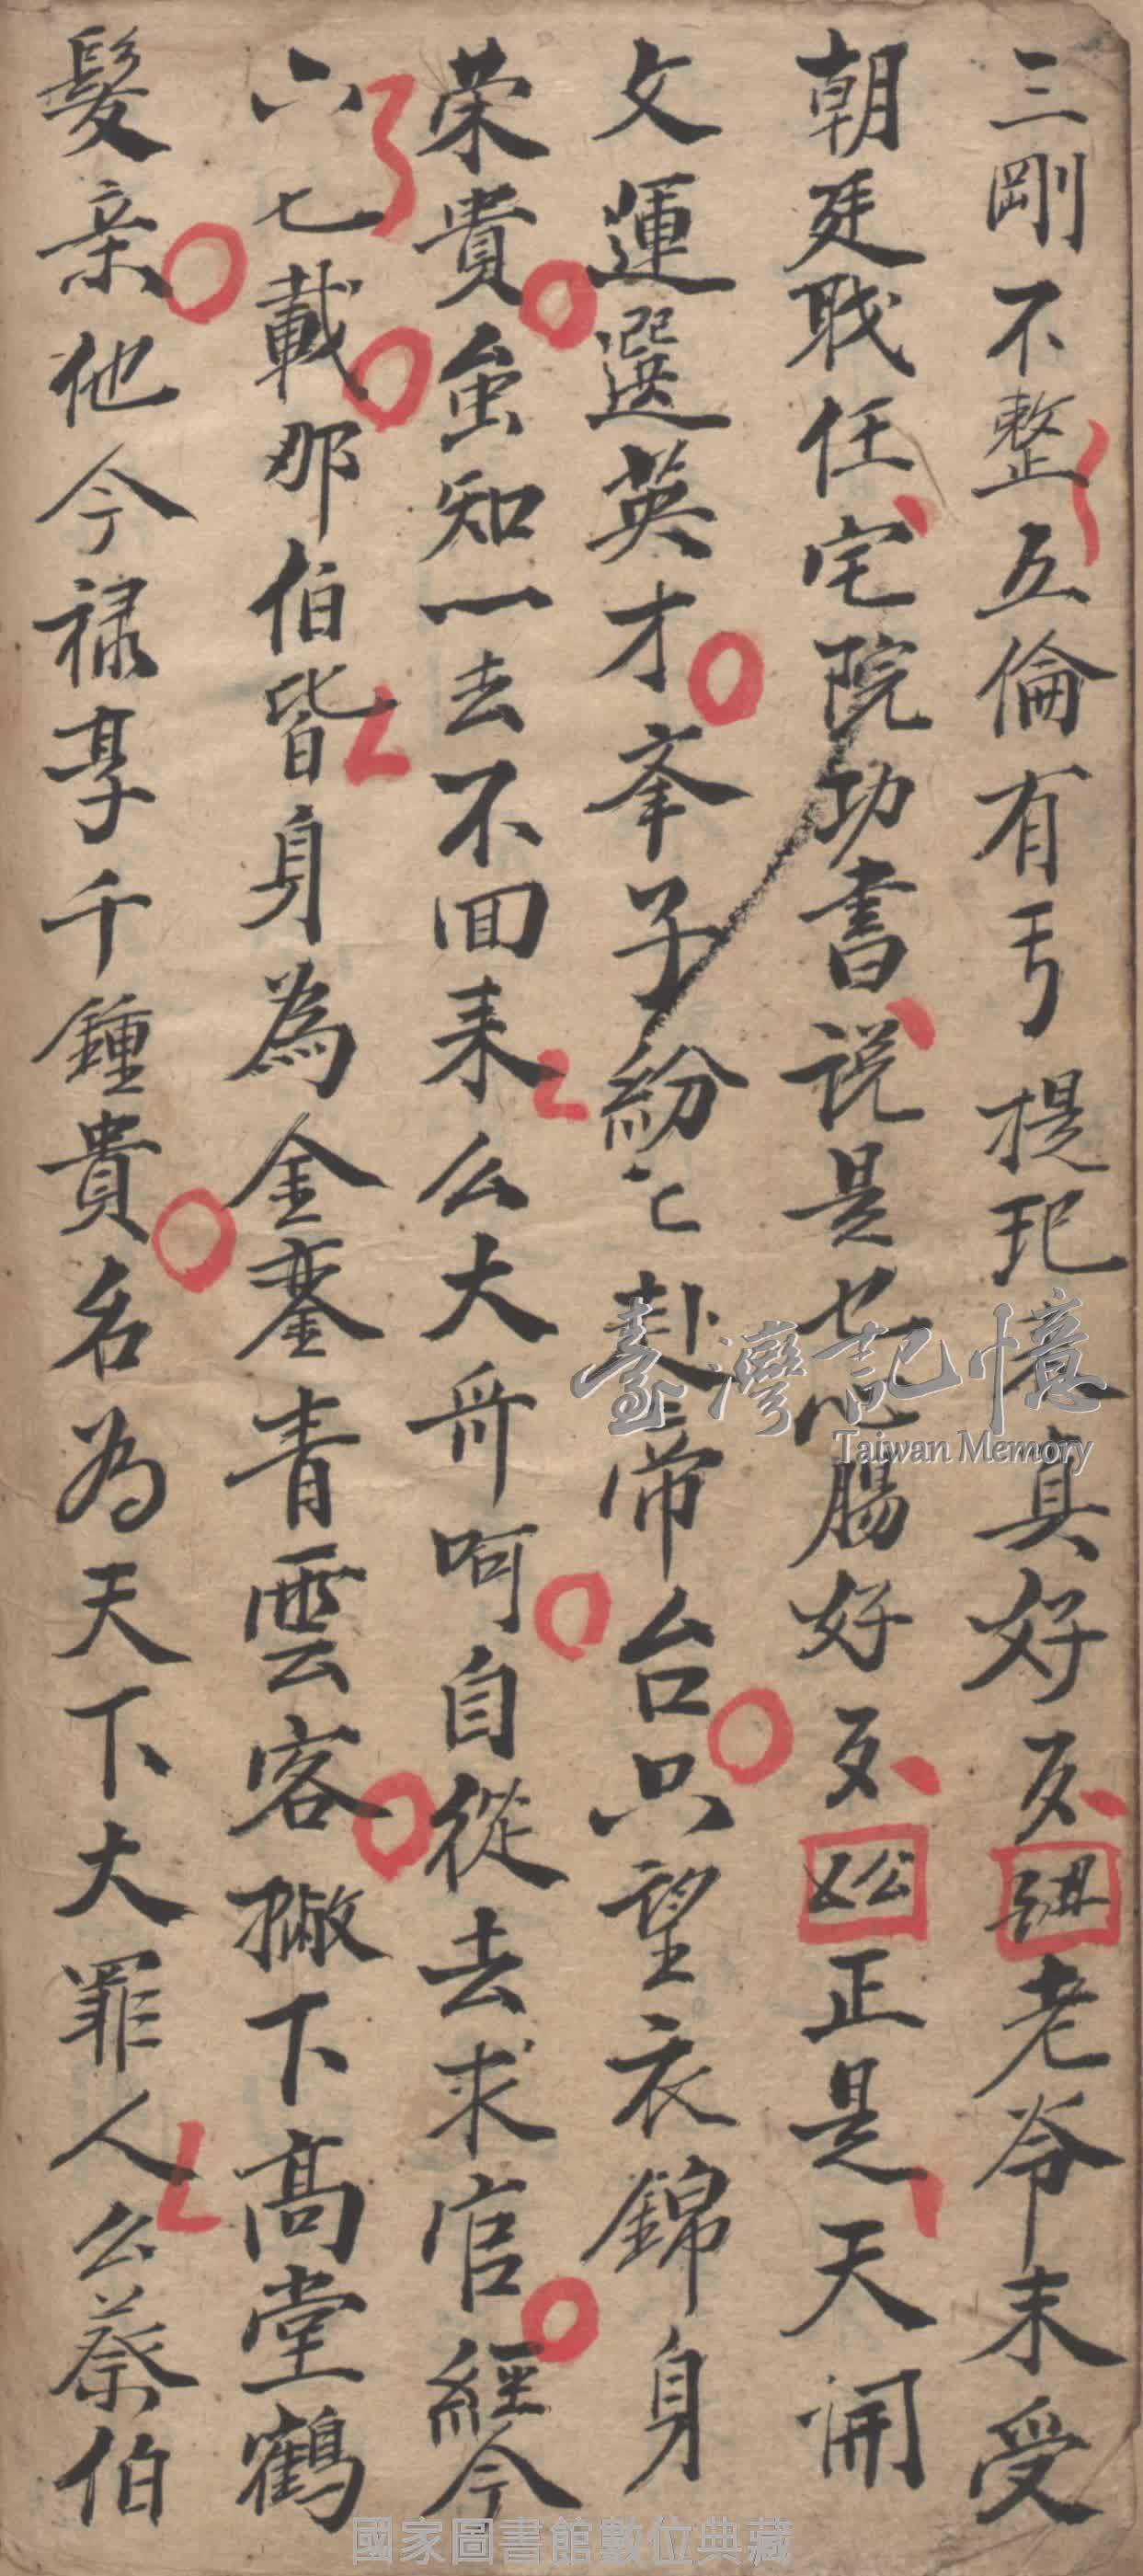 三剛不整五倫有亏提玘來真好反䋎老爷末受
朝廷戝任宅院功書説是也心腸好反妐正是天開
文運選英才夆子紛匕赴帝台只望衣錦身
荣貴虽知一去不回来么大哥呵自從去求官經今
六七載那伯皆身為金銮青雲客撇下高堂鶴
髮亲他今禄享千鍾貴名为天下大罪人么蔡伯
臺灣記憶
Taiwan Memory
國家圖書館數位典藏